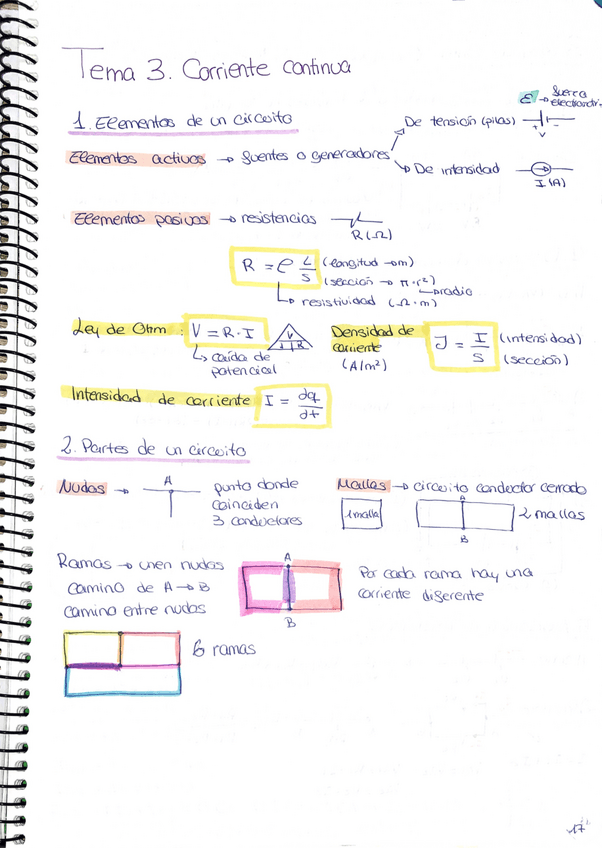 Tema 3. Corriente continua
1. Elementos de un circuito
Elementos activos → fuentes o generadores
De tensión (pilas)
ε → fuerza
+ -
V
De intensidad
I (A)
Elementos pasivos → resistencias
R (Ω)
R = ρ L/S
(longitud → m)
(sección → π·r²)
radio
resistividad (Ω·m)
Ley de Ohm: V = R·I
V
I R
caída de
potencial
Densidad de
corriente
(A/m²)
J = I/S
(intensidad)
(sección)
Intensidad de corriente I = dq/dt
2. Partes de un circuito
Nudos →
A
punto donde
coinciden
3 conductores
Mallas → circuito conductor cerrado
1 malla
A
B
2 mallas
Ramas → unen nudos
camino de A → B
camino entre nudos
A
B
Por cada rama hay una
corriente diferente
6 ramas
17